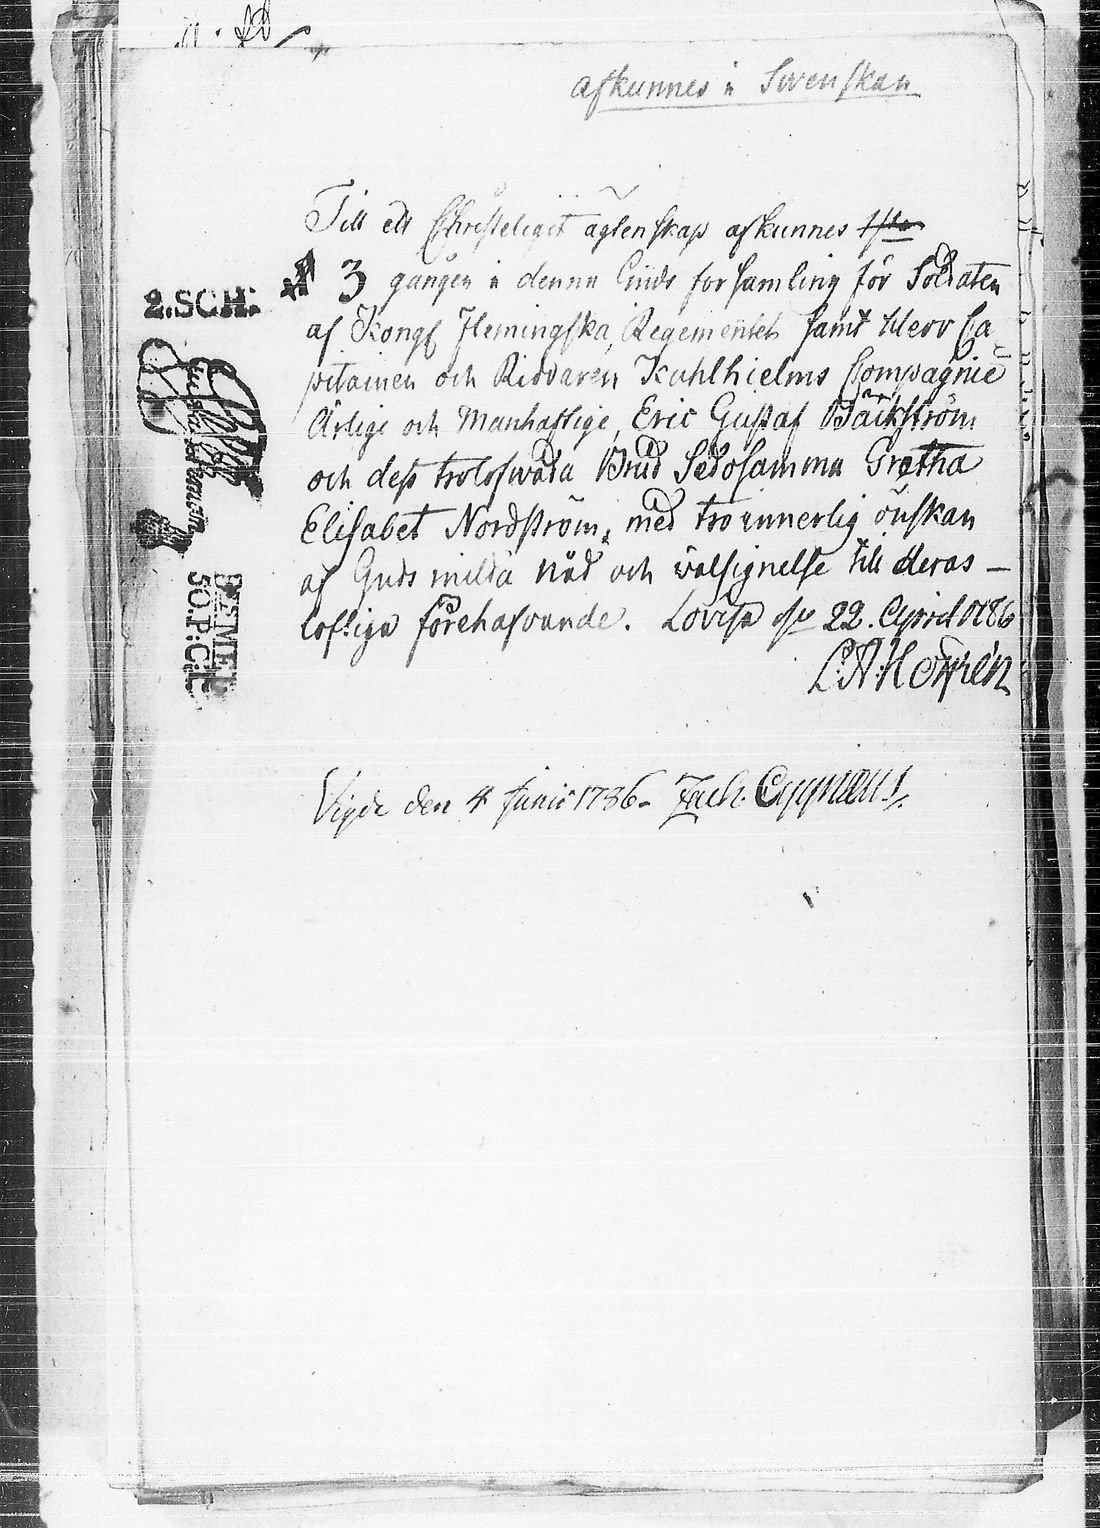 afkunnes i Swenskan
Till ett Christeligit ägtenskap afkunnes 1sta
3 gången i denna Guds forsamling för Soldaten
af Kongl Flemingska Regementet samt Herr Ca
pitainen och Riddaren Kuhlhielms Compagnie
Ärlige och Manhaftige, Eric Gustaf Bäckström
och dess trolofwada Brud Sedosamma Gretha
Elisabet Nordström, med troinnerlig önskan
af Guds milda nåd och wälsignelse till deras –
lofliga förehafvande. Lovisa d. 22. April 1786
2.SCH:
STEMPEL
50.P:C:L
Vigde den 4 Junii 1786– Zach. Cygnæus